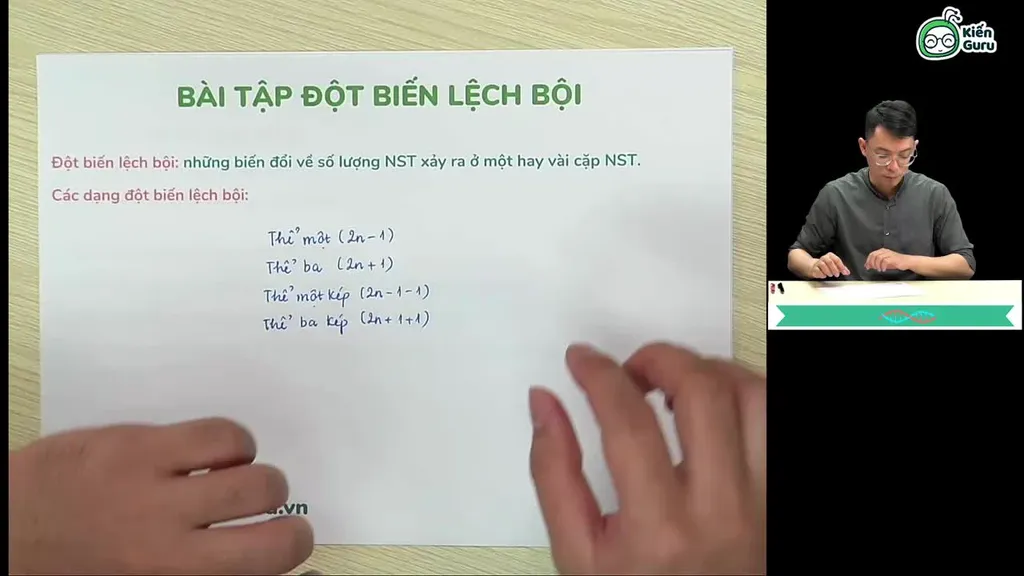 BÀI TẬP ĐỘT BIẾN LỆCH BỘI
Đột biến lệch bội: những biến đổi về số lượng NST xảy ra ở một hay vài cặp NST.
Các dạng đột biến lệch bội:
Thể một (2n-1)
Thể ba (2n+1)
Thể một kép (2n-1-1)
Thể ba kép (2n+1+1)
.vn
Kiến
Guru